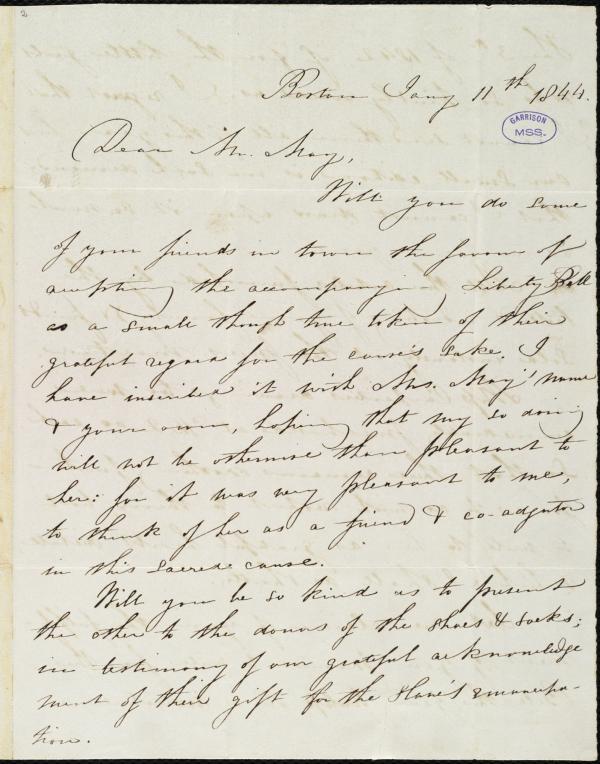 2
Boston Jany 11th 1844.
GARRISON
MSS.
Dear Mr. May,
Will you do some
of your friends in town the favour of
accepting the accompanying Liberty Bell
as a small though true token of their
grateful regard for the cause's sake. I
have inscribed it with Mrs. May's name
& your own, hoping that my so doing
will not be otherwise than pleasant to
her: for it was very pleasant to me,
to think of her as a friend & co-adjutor
in this sacred cause.
Will you be so kind as to present
the other to the donors of the shoes & socks;
in testimony of our grateful acknowledge
ment of their gift for the slave's emancipa-
tion.